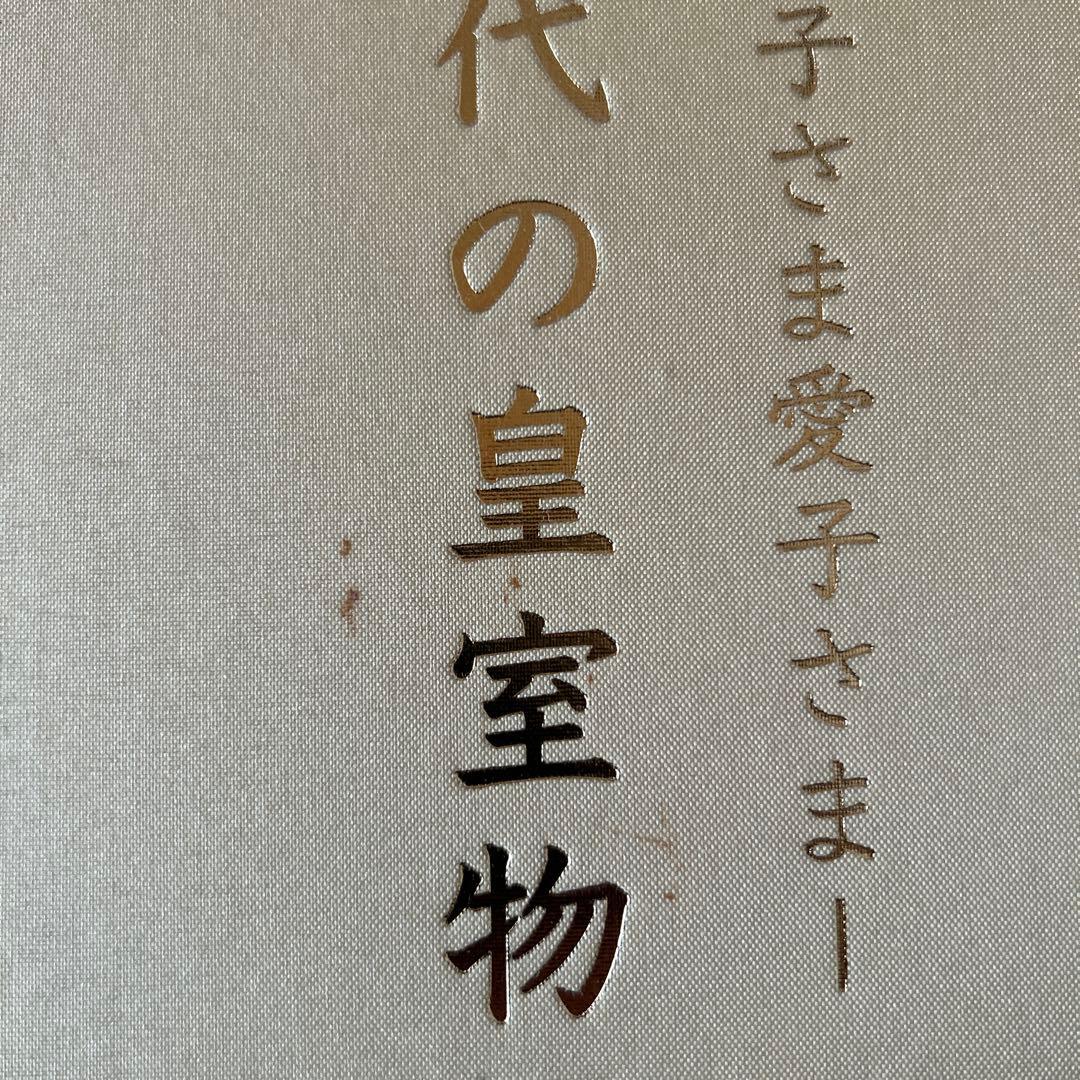 子さま愛子さまー
代の皇室物